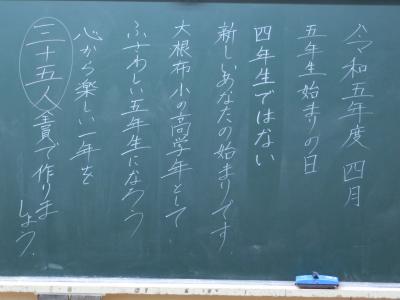 令和五年度 四月
五年生始まりの日
四年生ではない
新しいあなたの始まりです。
大根布小の高学年として、
ふさわしい五年生になろう
心から楽しい一年を
三十五人全員で作りま
しょう。